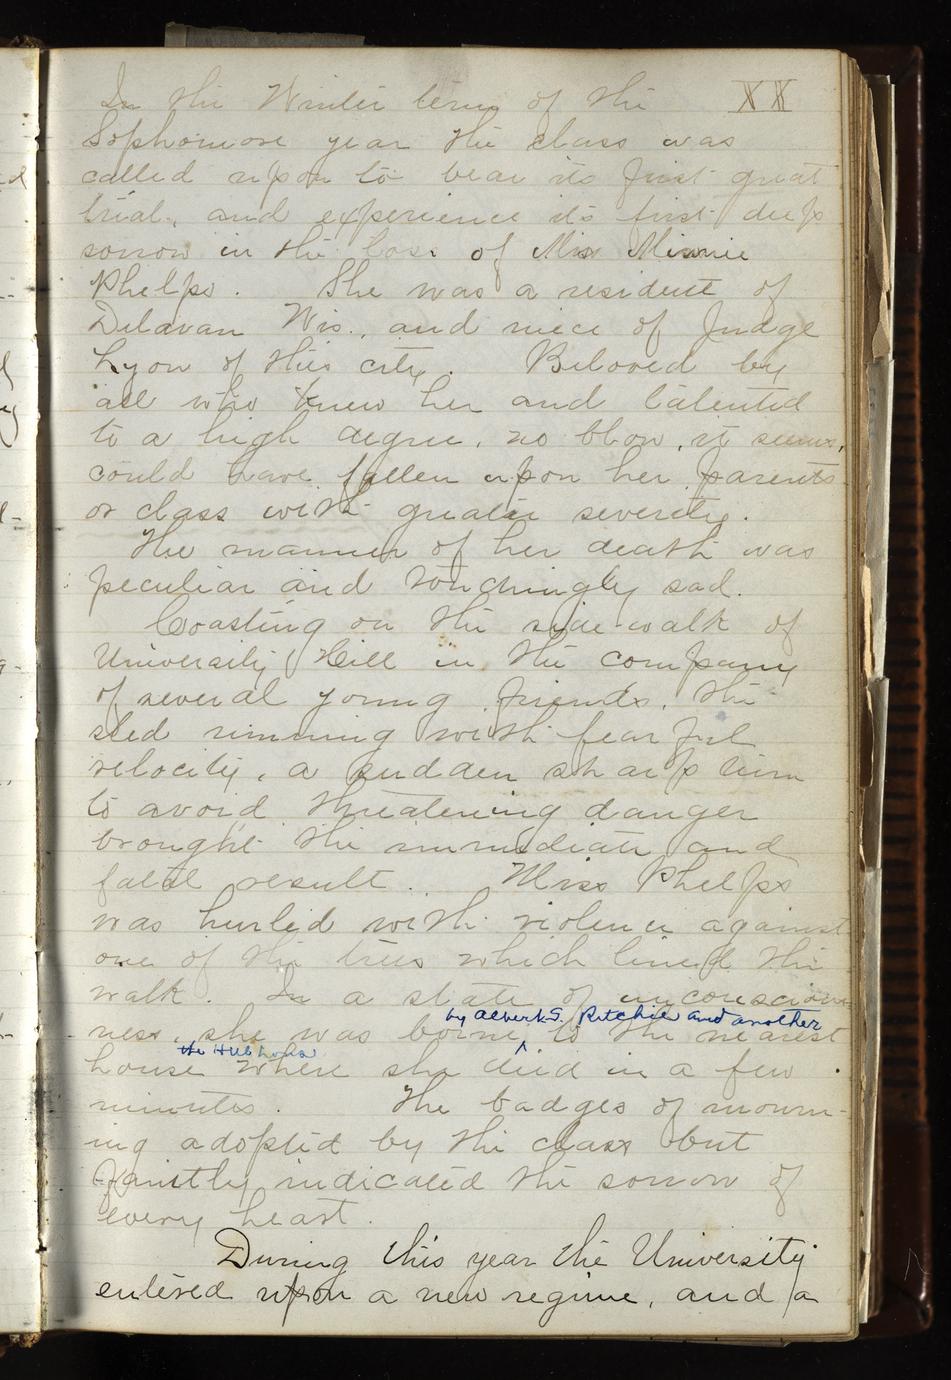 In the Winter term of the XX
Sophomore year the class was
called upon to bear its first great
trial, and experience its first deep
sorrow in the loss of Miss Minnie
Phelps. She was a resident of
Delavan Wis., and niece of Judge
Lyon of this city. Beloved by
all who knew her and talented
to a high degree, no blow, it seems,
could have fallen upon her parents
or class with greater severity.
The manner of her death was
peculiar and touchingly sad.
Coasting on the side-walk of
University Hill in the company
of several young friends, the
sled running with fearful
velocity, a sudden sharp turn
to avoid threatening danger
brought the immediate and
fatal result. Miss Phelps
was hurled with violence against
one of the trees which lined the
walk. In a state of unconscious-
by Albert S. Ritchie and another
ness, she was borne ^ to the nearest
the
house where she died in a few
minutes. The badges of mourn-
ing adopted by the class but
faintly indicated the sorrow of
every heart.
During this year the University
entered upon a new regime, and a